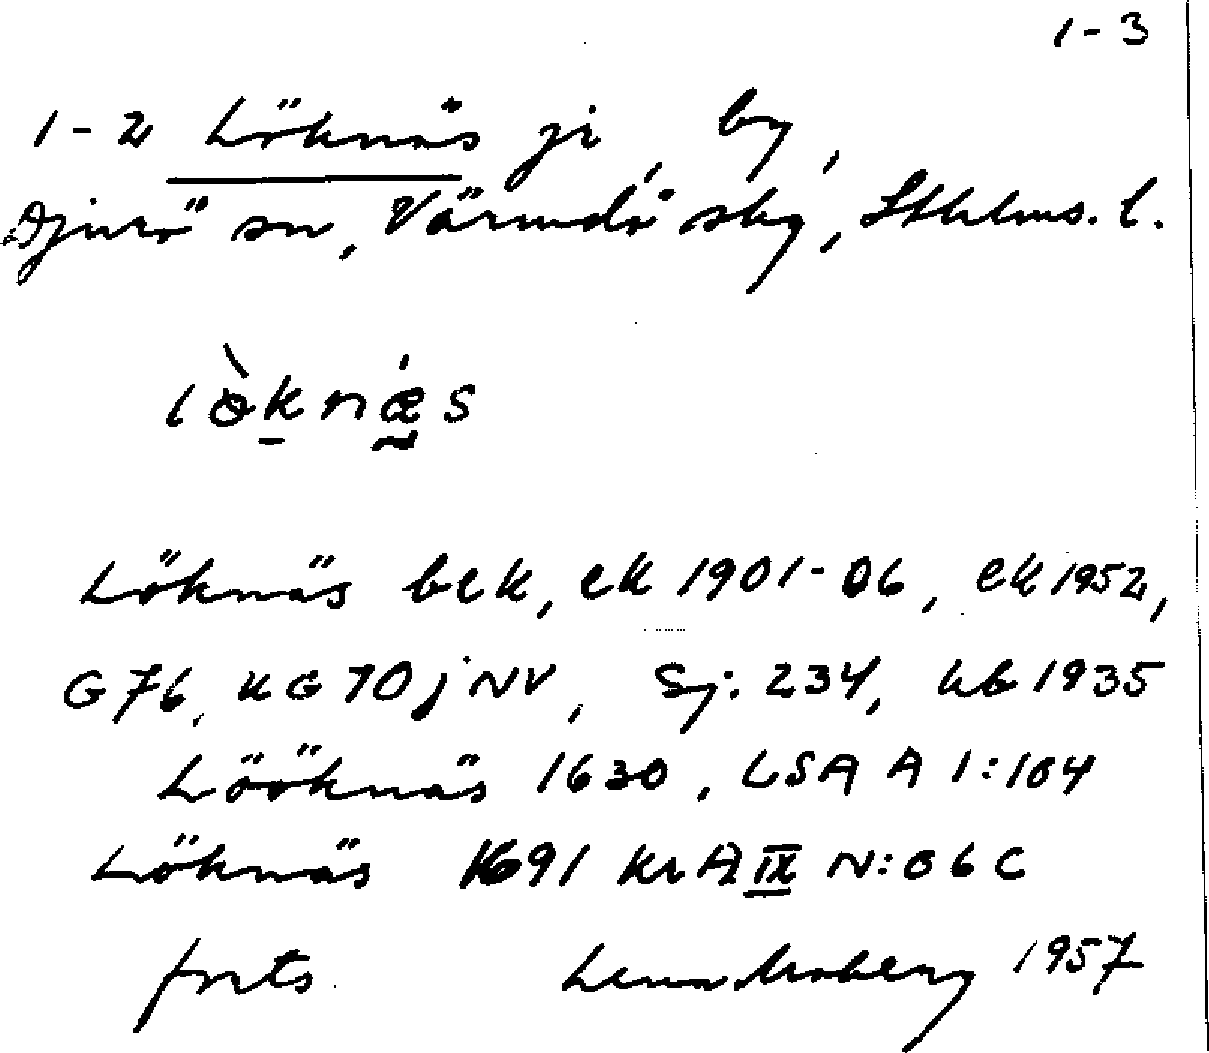 1-3
1-2 Löknäs ji, by,
Djurö sn, Värmdö skg, Sthlms. l.
lö̀knǽs
Löknäs bek, ek 1901-06, ek 1952,
G 76, KG 70 j NV, Sj. 234, hb 1935
Lööknäs 1630, LSA A 1:104
Löknäs 1691 KrA IX N:06 C
forts Lena Moberg 1957